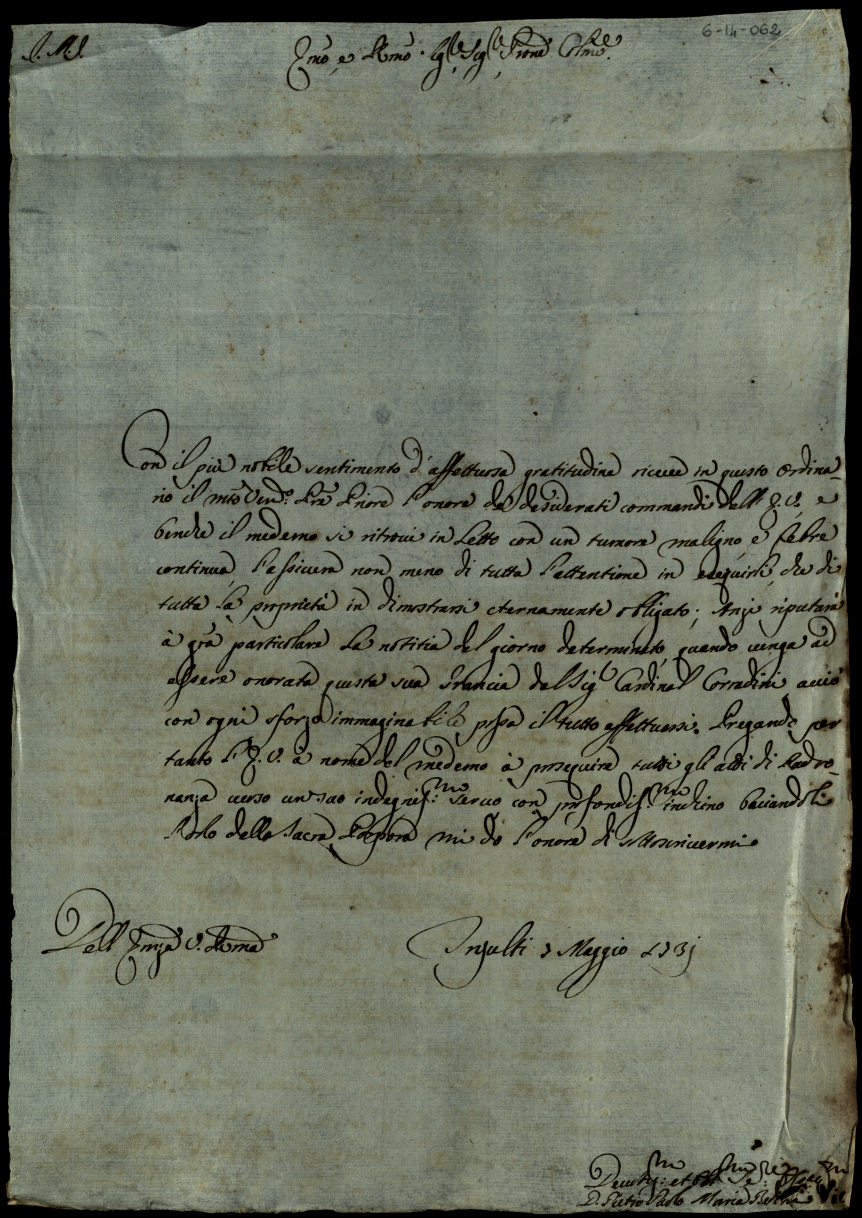 6-14-062
J. M. J.
Emo, e Rmo Sig.re Sig.re Prone Colmo.
Con il più nobile sentimento d'affettuosa gratitudine riceve in questo ordina-
rio il mto Vendo. Pre Priore l'onore de desiderati commandi dell' E. V., e
benche il medemo si ritrovi in Letto con un tumore maligno, e febre
continua, l'assicura non meno di tutta l'attentione in eseguirli, che di
tutta la proprietà in dimostrarsi eternamente obligato; Anzi riputarà
à gra particolare la notitia del giorno determinato, quando venga ad
essere onorata questa sua Grancia dal Sig.r Cardinal Corradini acciò
con ogni sforzo immaginabile possa il tutto effettuarsi. Pregando per
tanto l'E. V. à nome del medemo à proseguire tutti gli atti di Padro-
nanza verso un suo indegnis.mo servo con profondis.mo inchino baciandoli
l'Orlo della Sacra Porpora mi dò l'onore di sottoscrivermi.
Dell' Emza V. Rma
Trisulti 3 Maggio 1731
Devotis.mo et Obl.mo Se.re
D. Pietro Paolo Maria